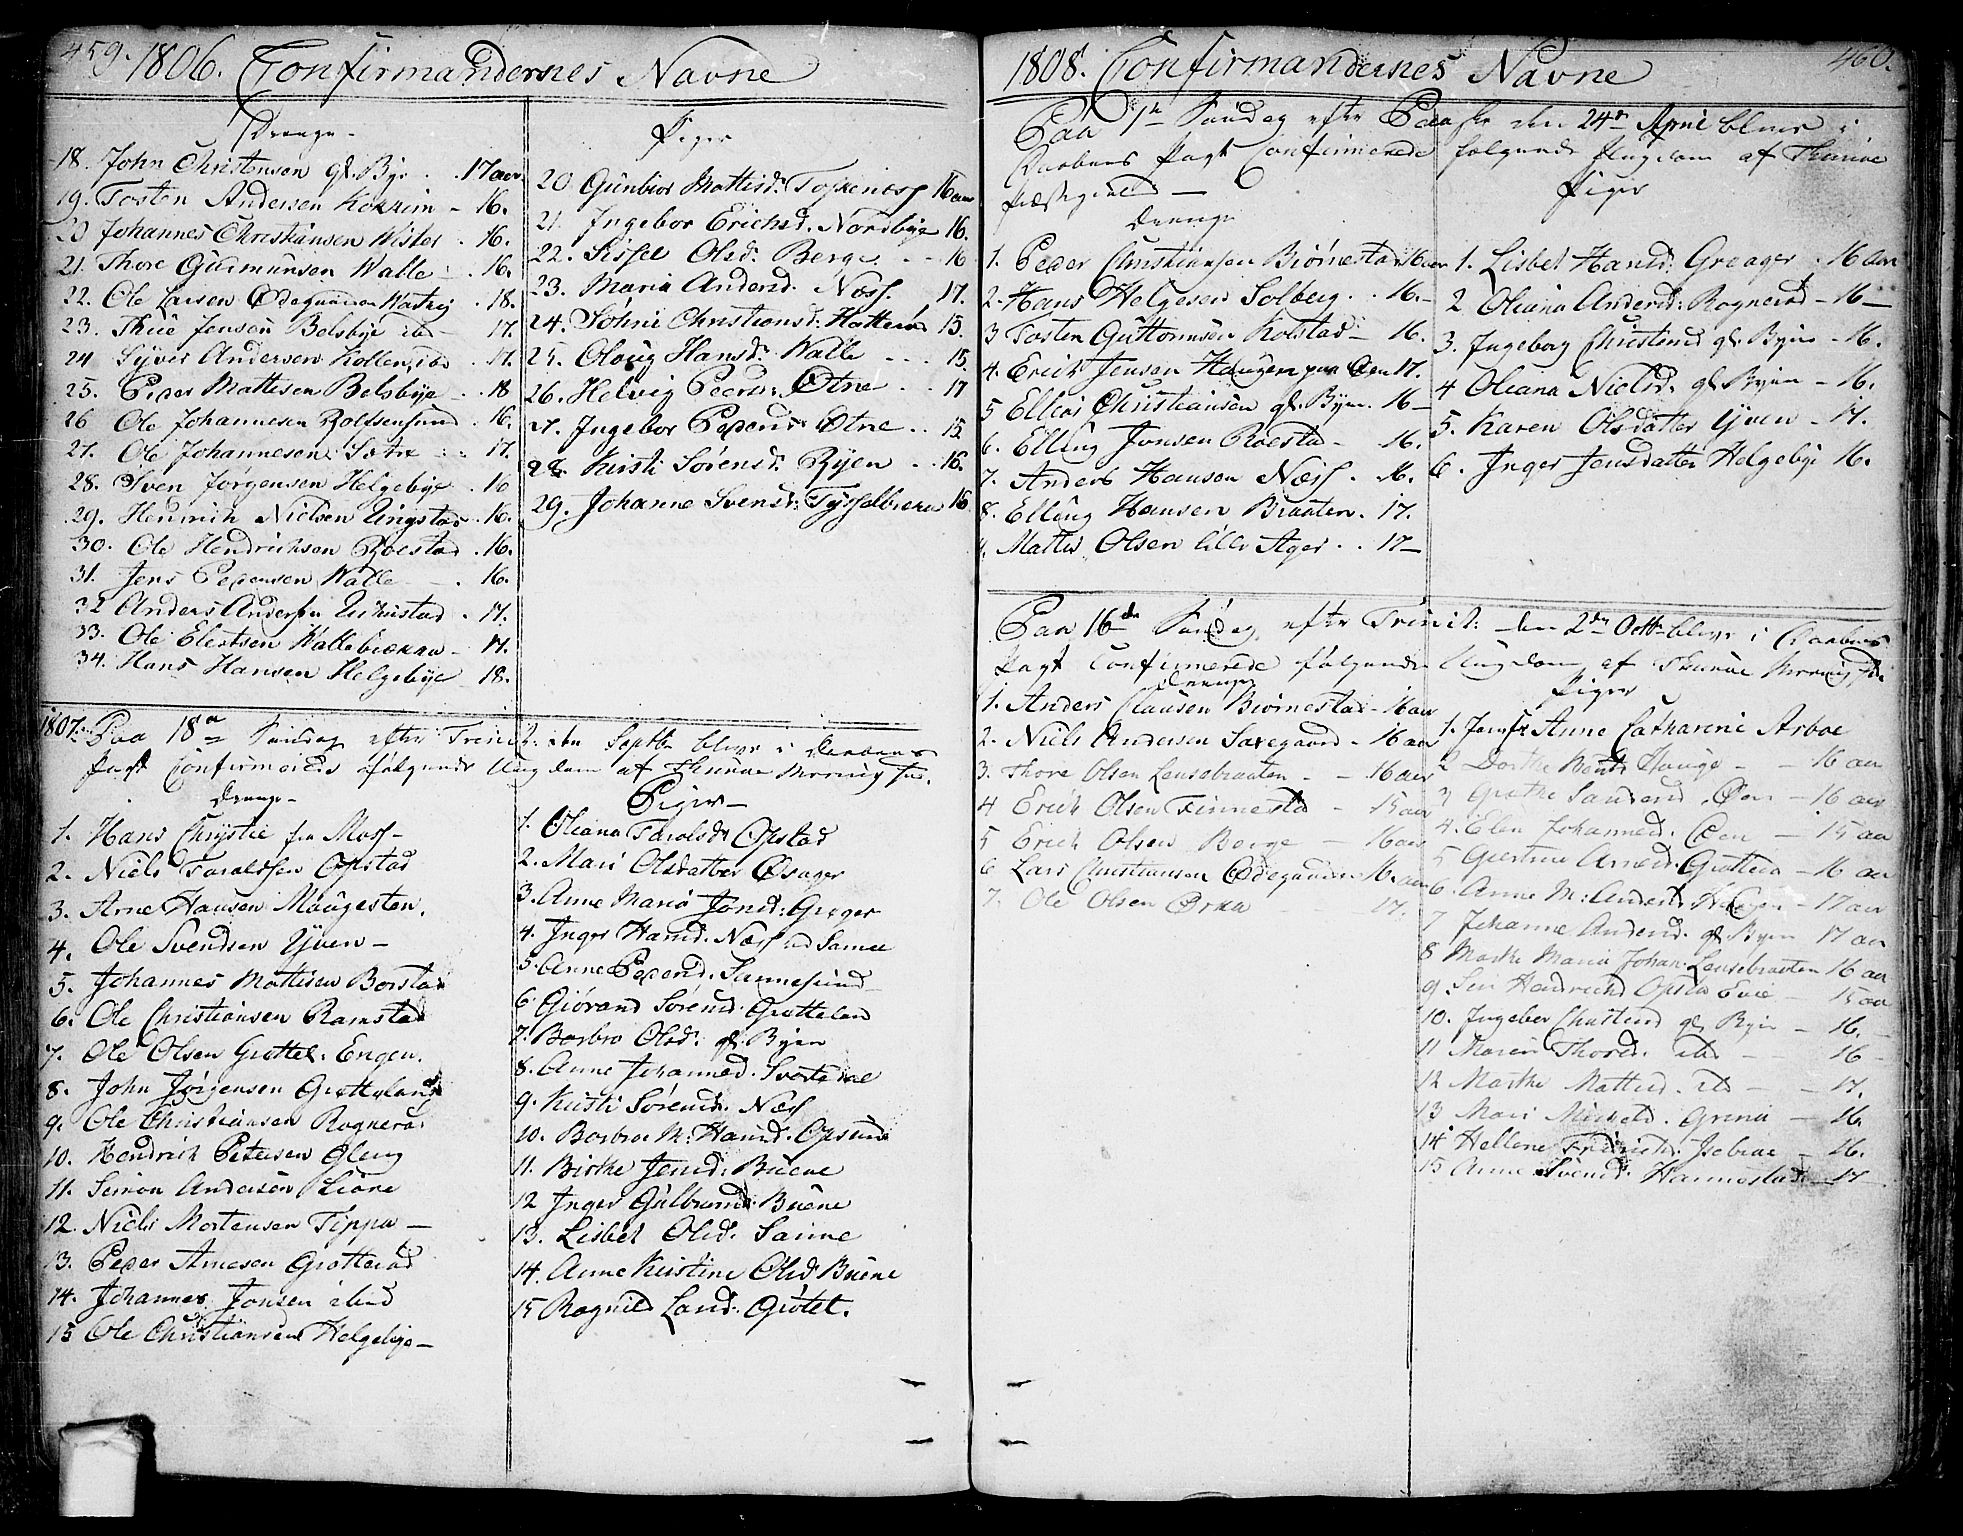 459. 1806. Confirmandernes Navne
Drenge
18. John Christensen gl. Bye . . 17 aar
19. Tosten Andersen Kokkim - 16.
20 Johannes Christiansen Wister . 16.
21. Thore Gudmunsen Walle . 16.
22. Ole Larsen Ødegaarden . 18.
23. Thue Jensen Belsbye - 17.
24 Syver Andersen . 17.
25. Peder Mattisen Belsbye . 18
26 Ole Johannesen Rolfsensund . 16.
27. Ole Johannesen Sætre . 17.
28. Sven Jørgensen Helgebye . 16
29. Hendrich Nielsen Ungstad . 16.
30. Ole Hendrichsen Roestad . 16.
31. Jens Pedersen Walle - . 16.
32 Anders Andersen . 17.
33. Ole Ellertsen Wallebrækka - 17.
34. Hans Hansen Helgebye 18.
Piger
20 Gunbior Mattisd: 16 aar
21. Ingebor Erichsd. Nordbye 16.
22. Sissel Olsd: Berge - - 16
23. Maria Andersd. Næss. 17.
24. Sohrie Christiansd: 15.
25. Oloug Hansd: Walle - - - 15
26. Helvig Pedersd: Østne . . 17
27. Ingebor Pedersd: Østne . . 15
28. Kirsti Sørensd: Ryen . . 16.
29. Johanne Svensd: 16
1807. Paa 18de Søndag efter Trinit: den Septbr blev i Daabens
Pagt Confirmerede følgende Ungdom af Thunøe
Drenge -
1. Hans Chrystie fra Moss -
2. Niels Taraldsen Opstad
3. Arne Hansen Maugesten.
4. Ole Svendsen Yven -
5. Johannes Mattisen Borstad
6. Ole Christiansen Ramstad
7. Ole Olsen Grottel: Engen.
8. John Jørgensen Grotteland
9. Ole Christiansen Rognerød
10. Hendrich Petersen Gleng
11. Simon Andersen
12. Niels Mortensen Tippa -
13. Peder Arnesen Grotterød
14. Johannes Jonsen ibid
15 Ole Christiansen Helgebye -
Piger -
1. Oliana Taraldsd: Opstad
2. Mari Olsdatter Øsager
3. Anne Maria Jonsd: Greger
4. Inger Hansd. Næss
5. Anne Pedersd. Sannesund
6 Giørand Sørensd. Grotteland
7. Barbro Olsd. gl. Byen
8. Anne Johannesd.
9. Kirsti Sørensd. Næss
10. Barbro M: Hansd. Opsund
11. Birthe Jensd. Buene
12 Inger Gulbransd: Buene
13. Lisbet Olsd. Sanne
14. Anne Kirstine Olsd Buene
15 Rognild
1808. Confirmandernes Navne 460.
Paa 1ste Søndag efter Paaske den 24de April blev i
Daabens Pagt Confirmerede følgende Ungdom af Thunøe
Præstegield -
Drenge
1. Peder Christiansen Biørnestad 16 aar
2. Hans Helgesen Solberg . . 16. -
3 Tosten Guttormsen Kolstad - 16.
4. Erich Jensen Haugen paa Øen 17.
5 Ellias Christiansen gl. Byen. 16 -
6. Elling Jonsen Roestad - 16.
7. Anders Hansen Næss . 16.
8. Elling Hansen Braaten . 17.
9. Mattis Olsen lille Ager . . 17 -
Piger
1. Lisbet Hansd. Greager . 16 aar
2 Oliana Andersd: Rognerød - 16 -
3. Ingeborg Christensd gl. Byen - 16.
4 Oliana Nielsd. gl. Byen - 16.
5. Karen Olsdatter Yven - 17.
6. Inger Jensdatter Helgebye 16.
Paa 16de Søndag efter Trinit: den 2den Octbr blev i Daabens
Pagt Confirmerede følgende Ungdom af Thunøe
Drenge
1. Anders Clausen Biørnestad - 16 aar
2. Niels Andersen - 16 aar
3. Thore Olsen Lensebraaten - - 16 aar
4 Erich Olsen Finnestad - 15 aar
5 Erich Olsen Berge - 16 aar
6 Lars Christiansen Ødegaarden 16. aar
7. Ole Olsen 17.
Piger
1. Jomfr Anne Catharine Arboe
2 Dorthe Hauge - - 16 aar
3 Grethe Øen - 16 aar
4. Elen Johannesd. Øen - 15 aar
5 Giertrue Arnesd. Grotterød - 16 aar
6. Anne M: Andersd - 17 aar
7 Johanne Andersd. gl. Byen 17 aar
8 Marthe Maria Johan. Lensebraaten 16 aar
9 Siri Hendrichsd - 15 aar
10. Ingebor Christensd gl Byen - 16.
11 Maren Thoresd. ibd - - 16 -
12 Marthe Mattisd. ibd - - 17.
13 Mari - 16.
14 Hellene Fridrichs. - 16.
15 Anne Svensd. Hannestad - 17